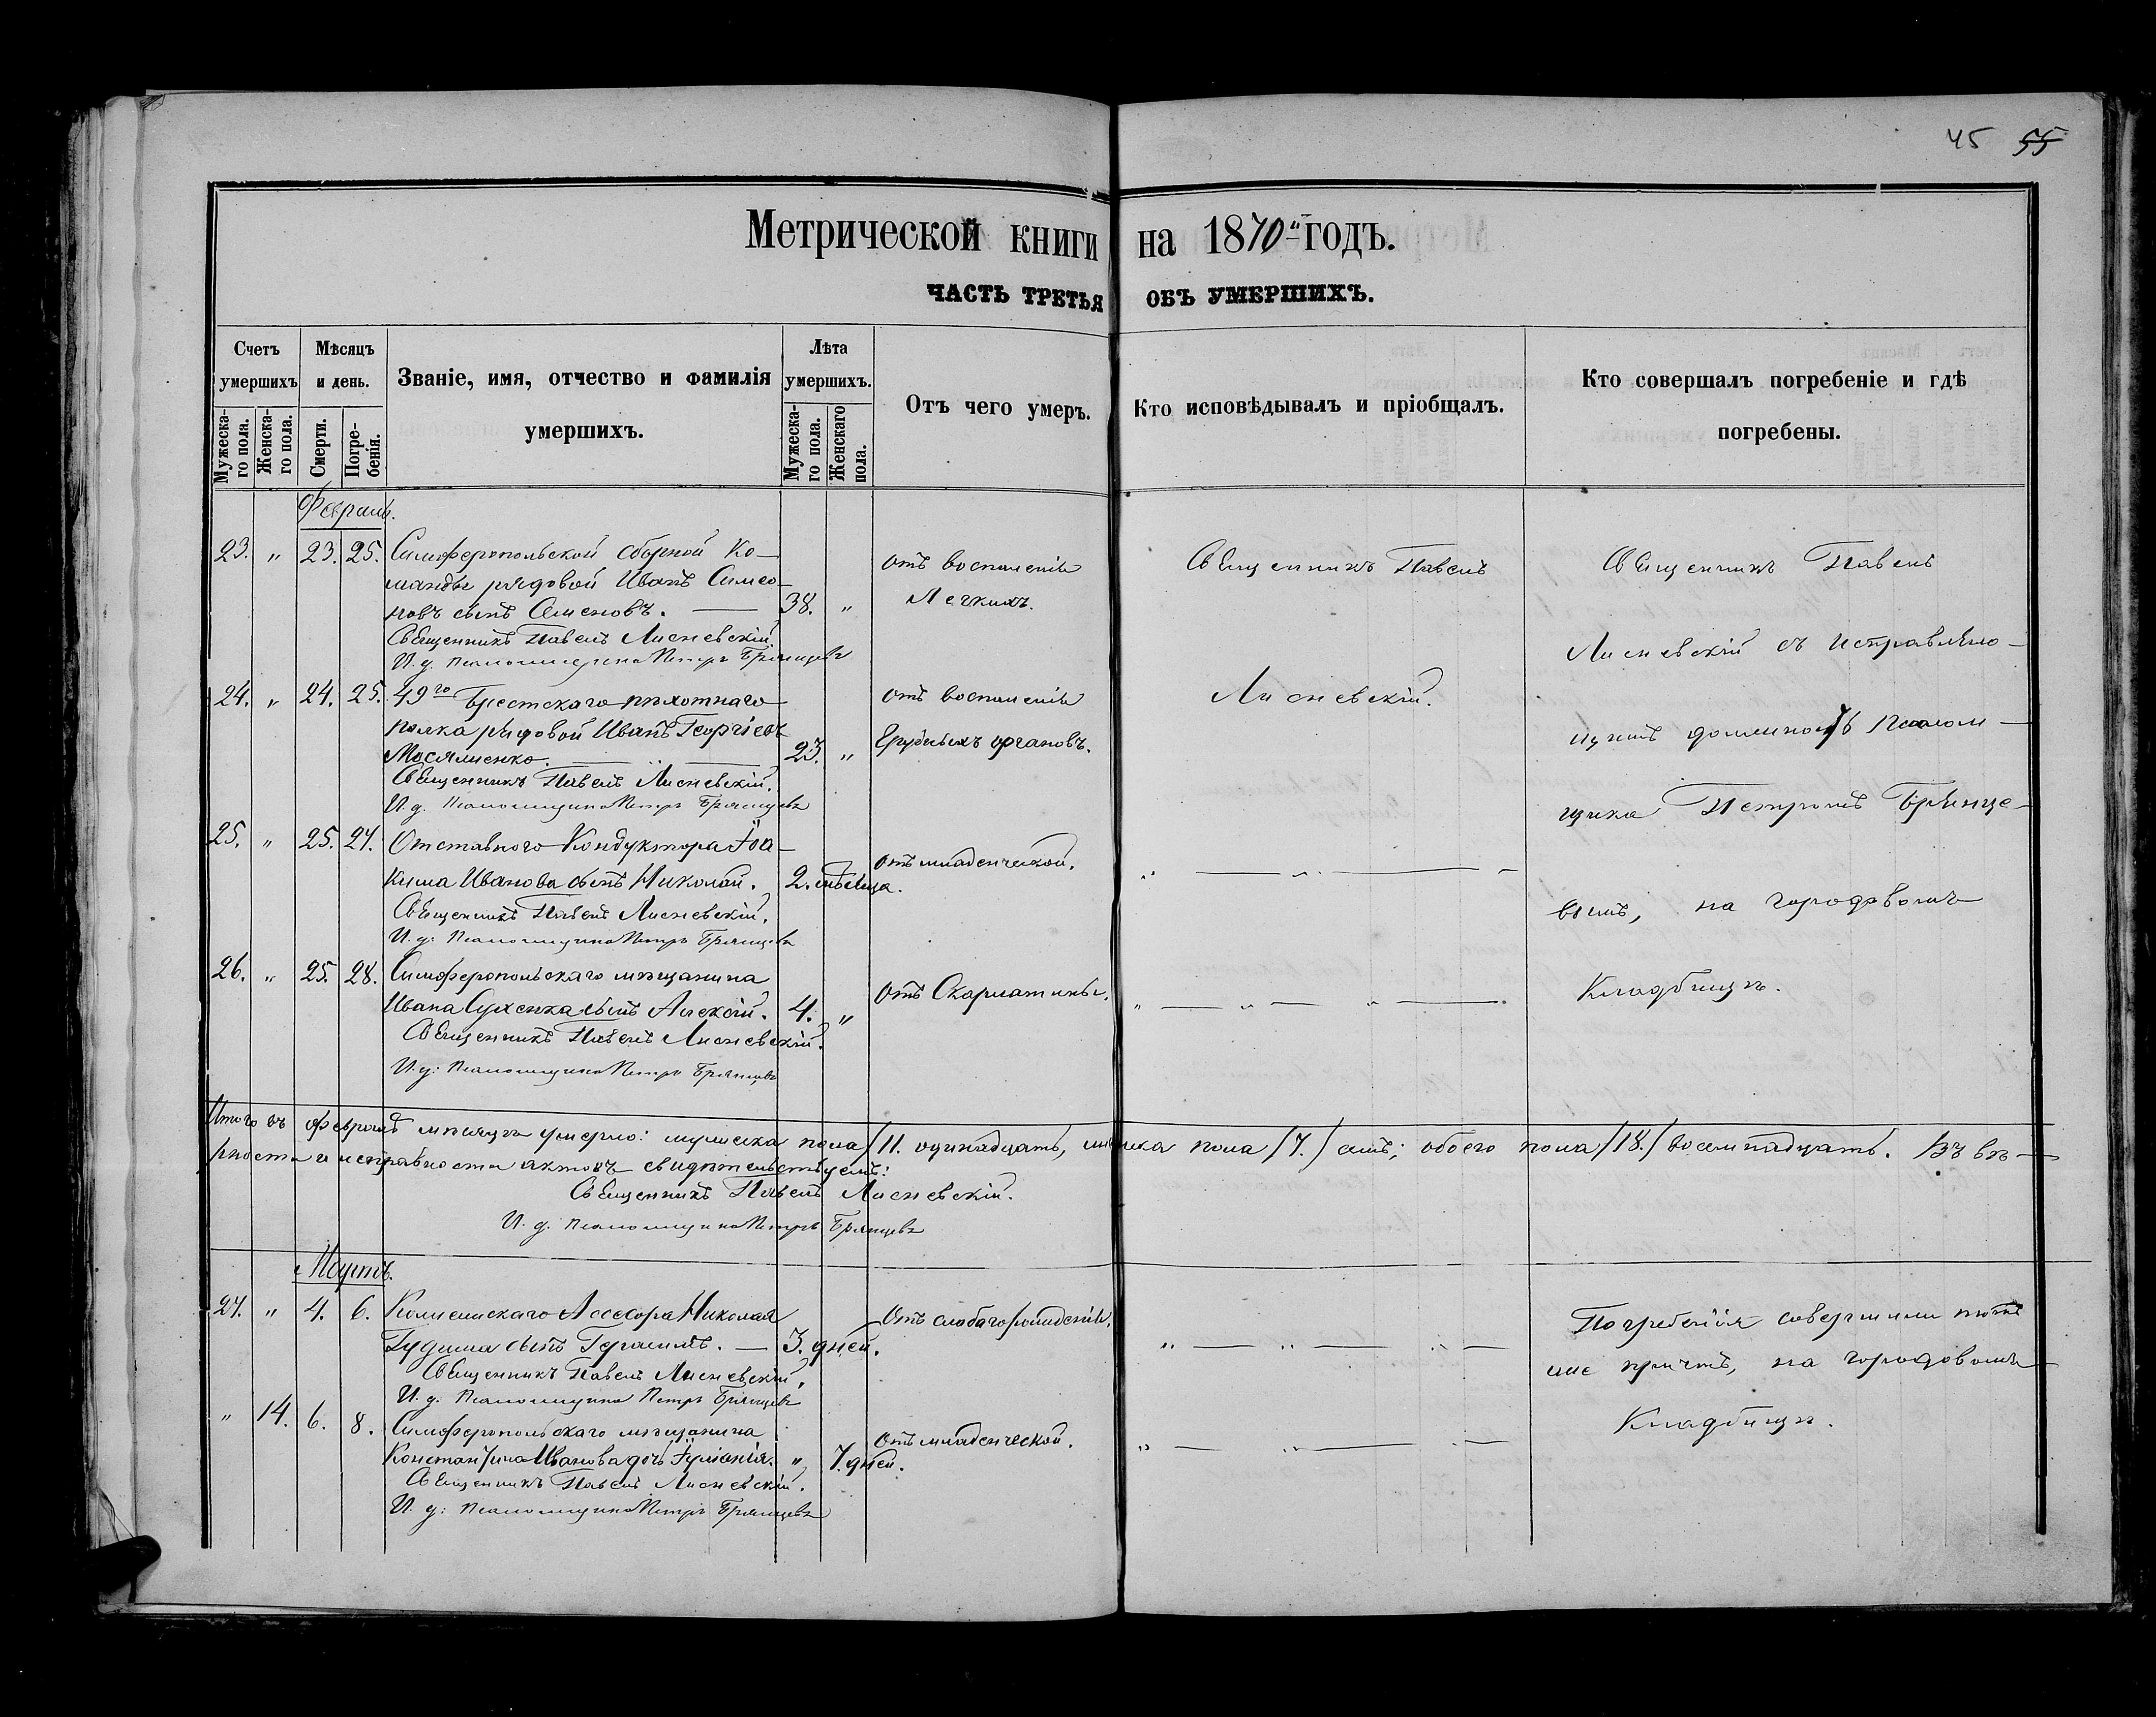 45 55
Метрической книги на 1870 годъ.
ЧАСТЬ ТРЕТЬЯ ОБЪ УМЕРШИХЪ.
Счетъ умершихъ
Мѣсяцъ и день.
Званіе, имя, отчество и фамилія умершихъ.
Лѣта умершихъ.
Отъ чего умеръ.
Кто исповѣдывалъ и пріобщалъ.
Кто совершалъ погребеніе и гдѣ погребены.
Мужеска-го пола.
Женска-го пола.
Смерти.
Погре-бенія.
Мужеска-го пола.
Женскаго пола.
Февраль.
23. „ 23. 25. Симферопольской сборной Ко-
манды рядовой Иванъ Симео-
новъ сынъ Семеновъ. — 38. „ отъ воспаленія Легкихъ.
Священникъ Павелъ Лисневскій
И. д. Псаломщика Петръ Брянцевъ
24. „ 24. 25. 49го Брестскаго пѣхотнаго
полка рядовой Иванъ Георгіевъ
Мосяменко. 23. „ отъ воспаленія Грудныхъ органовъ.
Священникъ Павелъ Лисневскій.
И. д. Псаломщика Петръ Брянцевъ
25. „ 25. 27. Отставного Кондуктора Іоа-
кима Иванова сынъ Николай. 2. мѣсяца. отъ младенческой.
Священникъ Павелъ Лисневскій.
И. д. Псаломщика Петръ Брянцевъ
26. „ 25. 28. Симферопольскаго мѣщанина
Ивана Сухенка сынъ Алексій. 4. „ Отъ Скарлатины.
Священникъ Павелъ Лисневскій.
И. д: Псаломщика Петръ Брянцевъ
Священникъ Павелъ
Лисневскій.
Священникъ Павелъ
Лисневскій съ исправляю-
щимъ должность Псалом-
щика Петромъ Брянце-
вымъ, на городовомъ
Кладбищѣ.
Итого въ февралѣ мѣсяцѣ умерло: мужеска пола /11. одинадцать, женска пола /7./ семь; обоего пола /18./ восемнадцать. Въ вѣ-
рности и исправности актовъ свидѣтельствуемъ:
Священникъ Павелъ Лисневскій.
И. д. Псаломщика Петръ Брянцевъ
Мартъ.
27. „ 4. 6. Колежскаго Ассесора Николая
Гудима сынъ Герасимъ. — 3. дней. Отъ слабаго рожденія.
Священникъ Павелъ Лисневскій.
И. д. Псаломщика Петръ Брянцевъ
„ 14. 6. 8. Симферопольскаго мѣщанина
Константина Иванова дочь Іуліанія. „ 7. дней. Отъ младенческой.
Священникъ Павелъ Лисневскій.
И. д: Псаломщика Петръ Брянцевъ
Погребенія совершили тотъ
же причтъ, на городовомъ
Кладбищѣ.